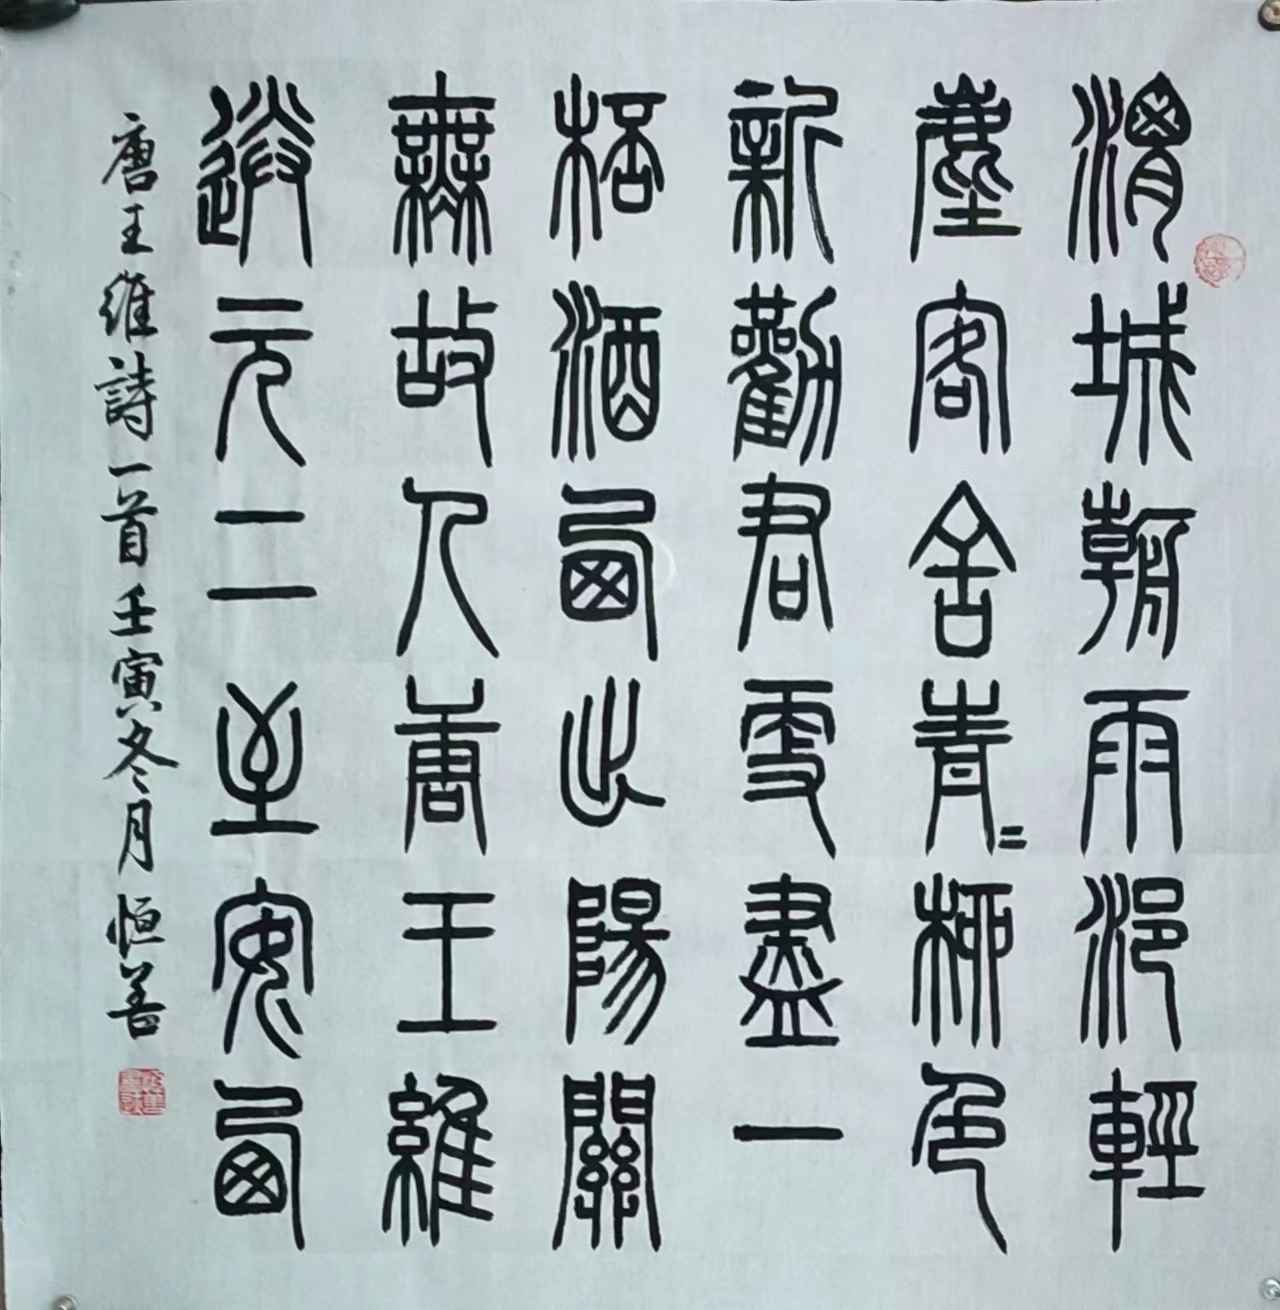 渭城朝雨浥輕
塵客舍青〻柳色
新勸君更盡一
桮酒西出陽關
無故人唐王維
送元二至安西
唐王維詩一首壬寅冬月恒善